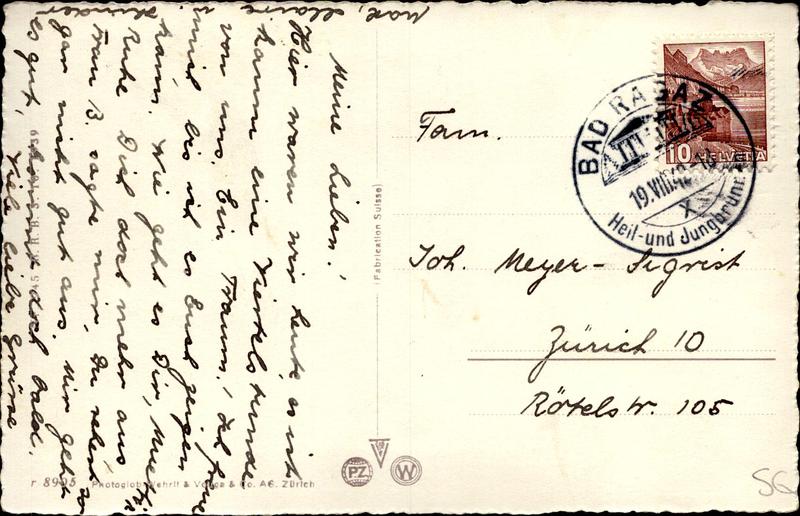 Meine Lieben!
Hier waren wir heute, es ist
kaum eine Viertelstunde
von uns. Ein Traum! Ich freue
mich bis ich es Euch zeigen
kann. Wie geht es Dir,
Ruhe Dich doch mehr aus
Frau B. sagte mir, Du sehest so
gar nicht gut aus. Mir geht
es gut, doch bald.
Viele liebe Grüsse
Max, Claire
Kinder
(Fabrication Suisse)
r 8905 Photoglob-Wehrli & Vouga & Co. AG. Zürich
PZ
W
BAD RAGAZ
19.VIII
Heil- und Jungbrunn
10 HELVETIA
Fam.
Joh. Meyer-Sigrist
Zürich 10
Rötelstr. 105
SG